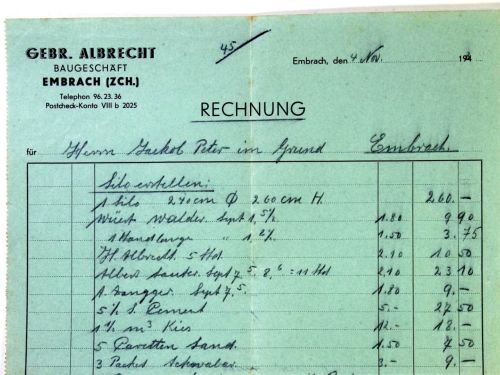 45
GEBR. ALBRECHT
BAUGESCHÄFT
EMBRACH (ZCH.)
Telephon 96.23.36
Postcheck-Konto VIII b 2025
Embrach, den 4 Nov. 194
RECHNUNG
für Herrn Jackob Peter im Grund Embrach.
Silo erstellen:
1 Silo 240 cm Ø 260 cm H. 260.-
Walder. Sept 1.80 9 90
1 Handlanger " 1.50 3.75
H. Albrecht 5 Std. 2.10 10 50
Albert Sept 7, 8, = 11 Std 2.10 23 10
A. Zangger. Sept 7, 1.80 9.-
5 ½ S. Cement 5.- 27 50
1 ½ m³ Kies 12.- 18.-
5 Caretten Sand. 1.50 7 50
3 Packet 3.- 9.-